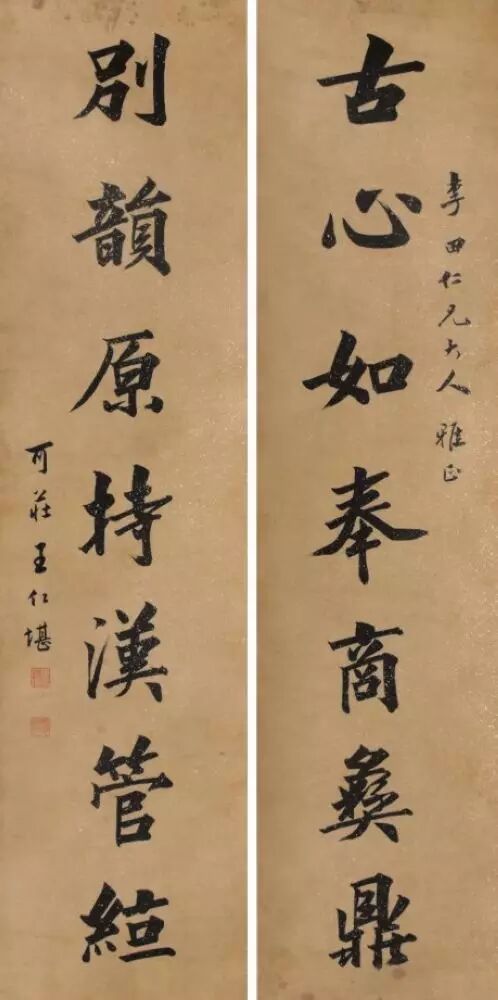 古心如奉商彝鼎
季田仁兄大人雅正
別韻原持漢管絙
可莊王仁堪